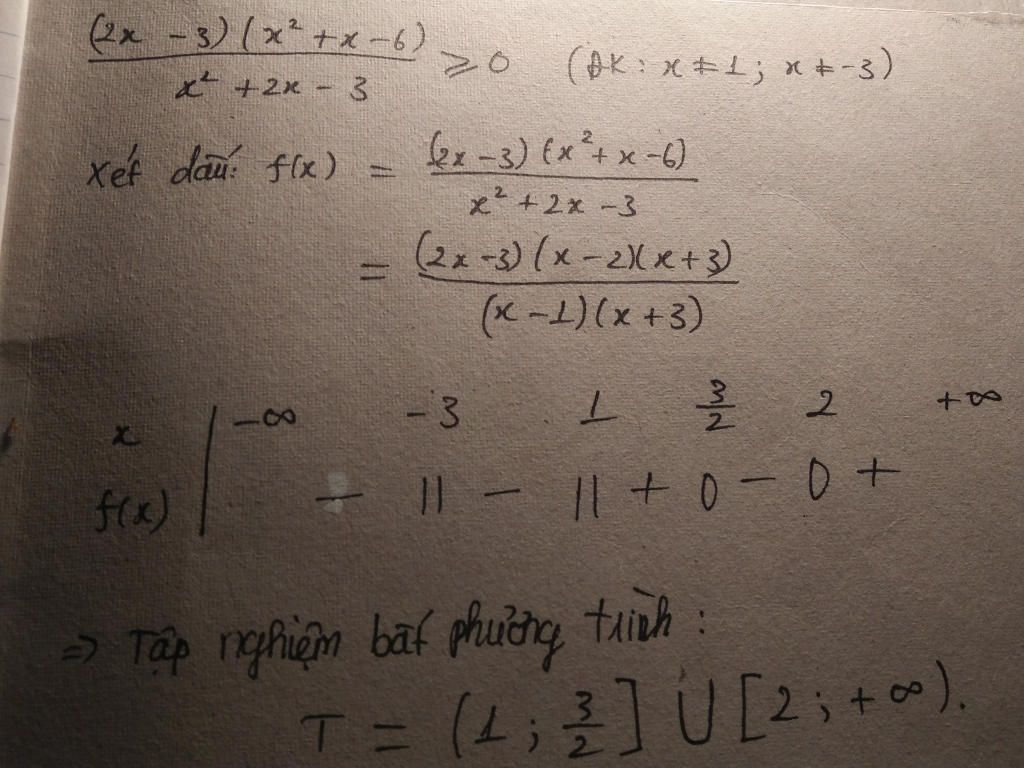 (2x - 3)(x² + x - 6) / x² + 2x - 3 ⩾ 0 (ĐK: x ≠ 1; x ≠ -3)
Xét dấu: f(x) = (2x - 3)(x² + x - 6) / x² + 2x - 3
= (2x - 3)(x - 2)(x + 3) / (x - 1)(x + 3)
x | -∞ -3 1 3/2 2 +∞
f(x) | - || - || + 0 - 0 +
=> Tập nghiệm bất phương trình:
T = (1; 3/2] U [2; +∞).